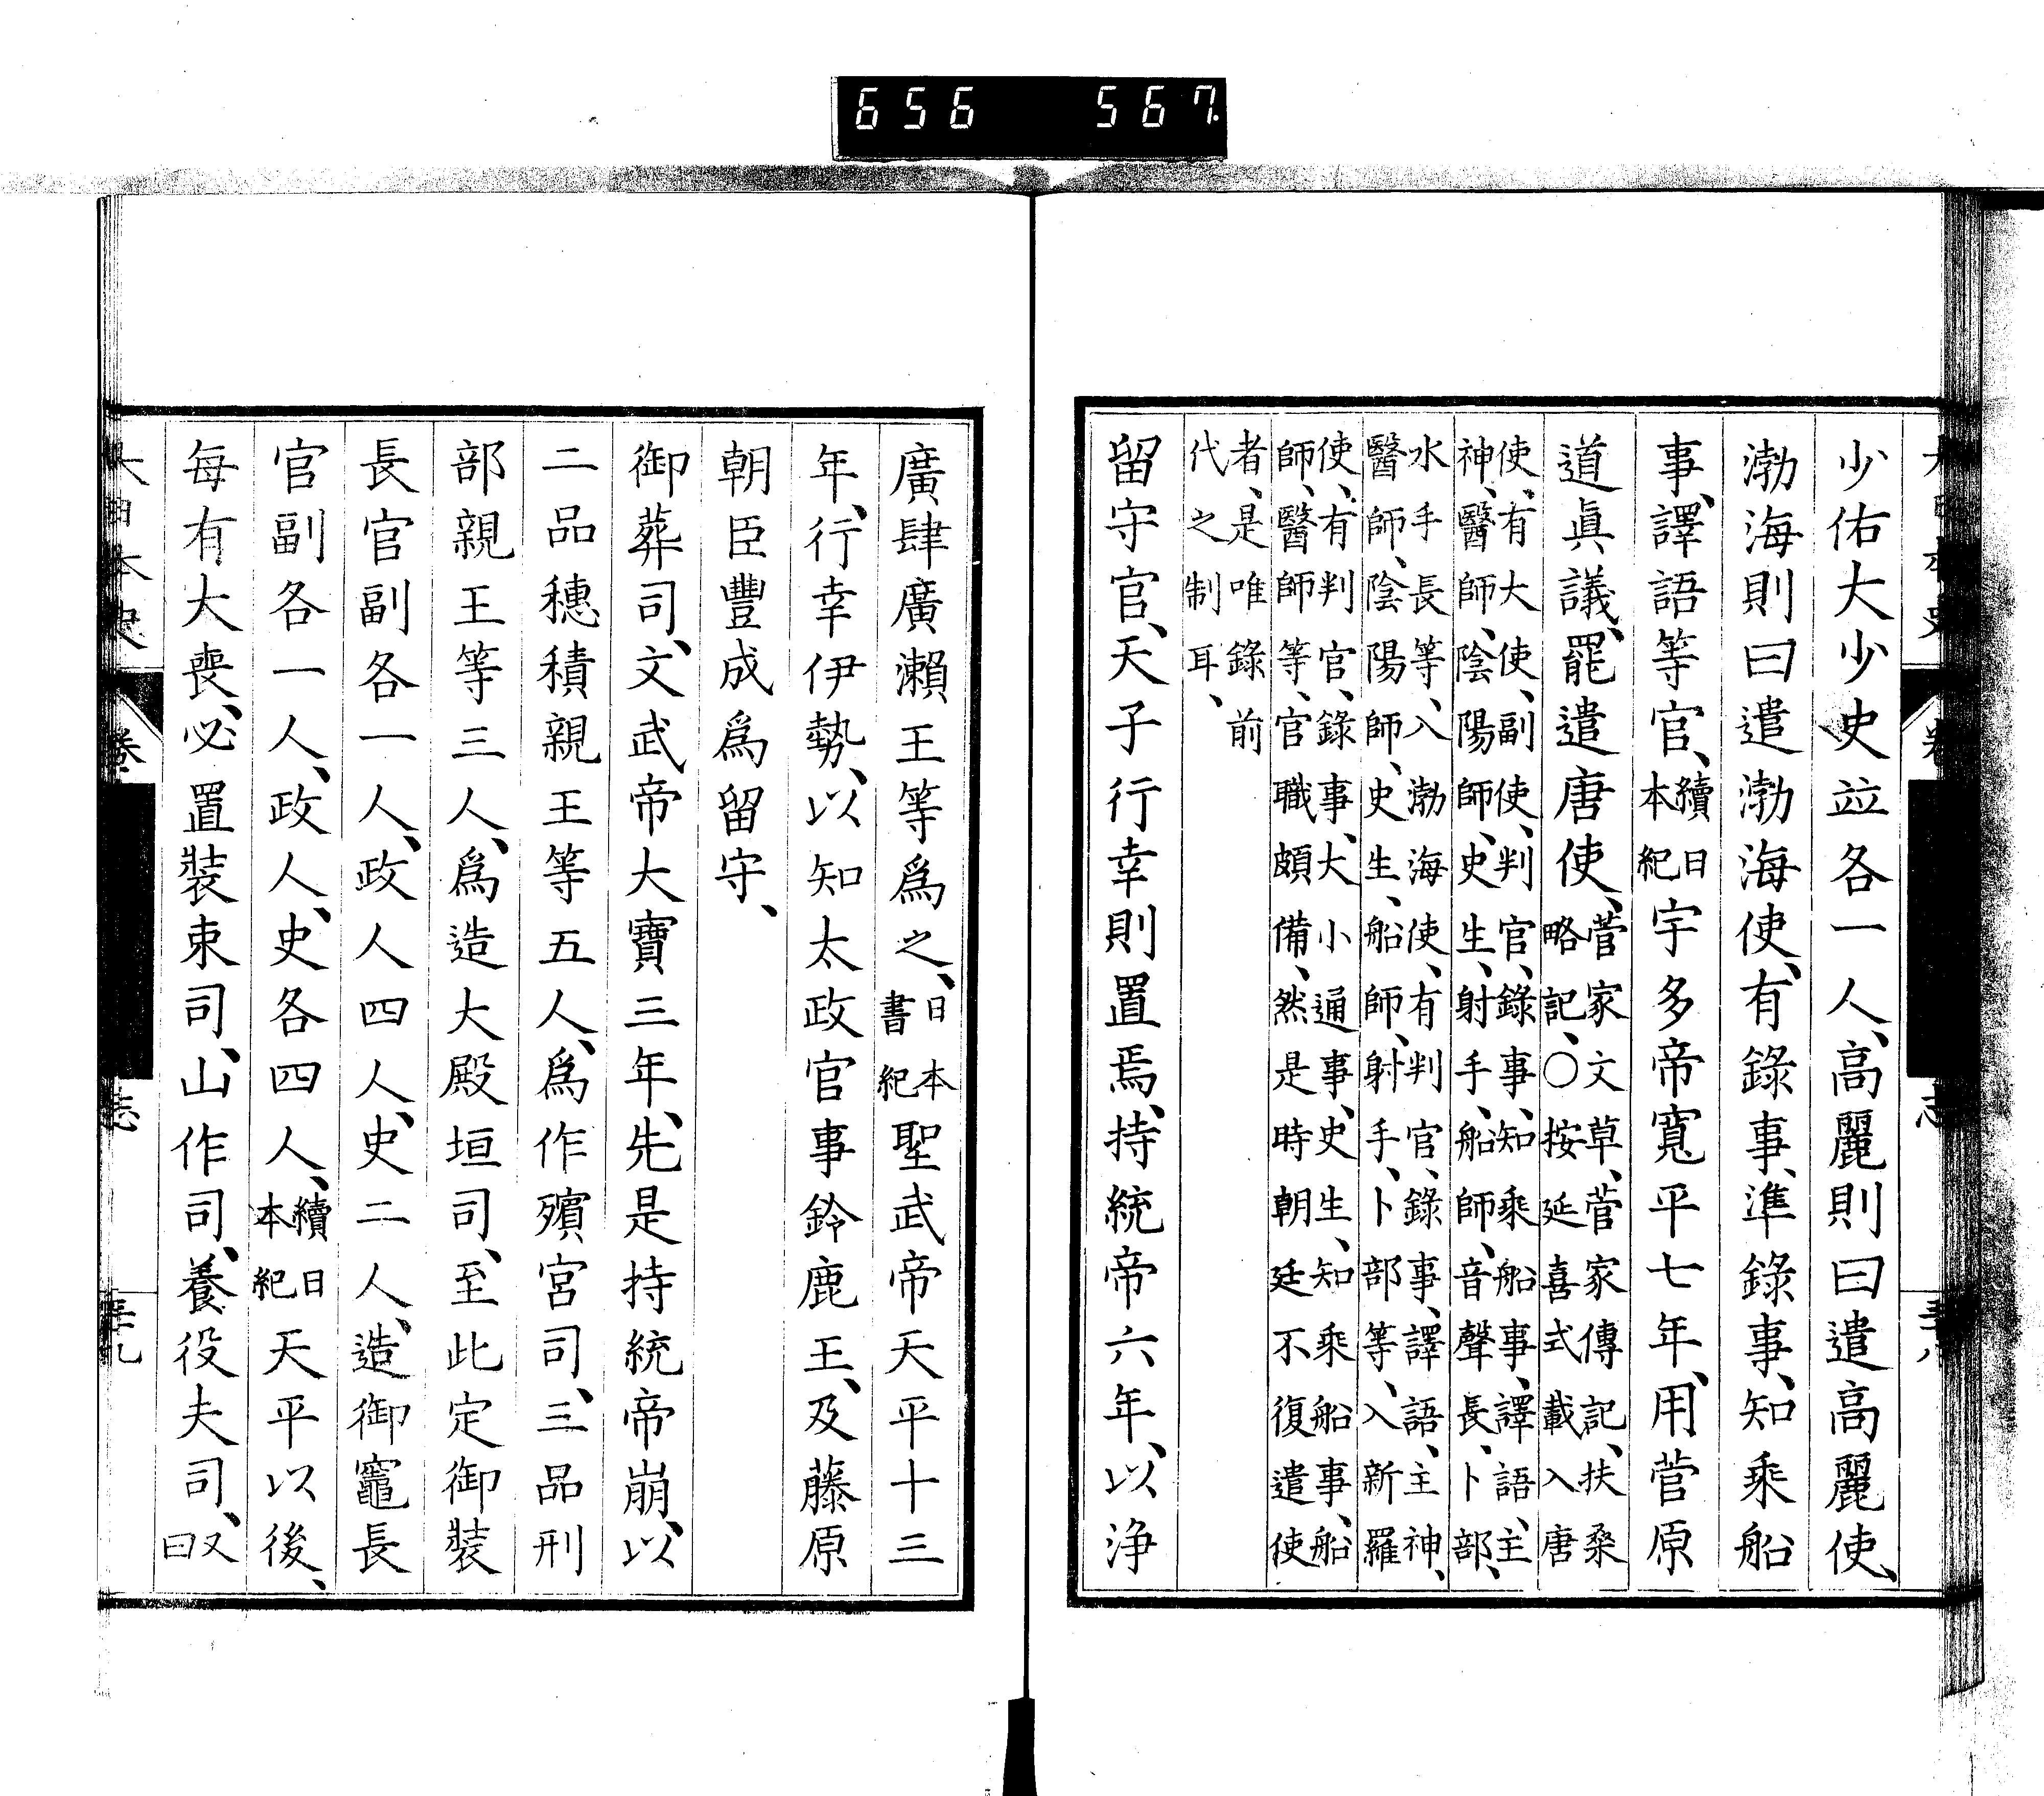 656 567
少佑大少史竝各一人、高麗則曰遣高麗使、
渤海則曰遣渤海使、有錄事、準錄事、知乘船
事、譯語等官、續日本紀宇多帝寬平七年、用菅原
道眞議、罷遣唐使、菅家文草、菅家傳記、扶桑略記、〇按延喜式載入唐
使、有大使、副使、判官、錄事、知乘船事、譯語、主神、醫師、陰陽師、史生、射手、船師、音聲長、卜部、
水手長等、入渤海使、有判官、錄事、譯語、主神、醫師、陰陽師、史生、船師、射手、卜部等、入新羅
使、有判官、錄事、大小通事、史生、知乘船事、船師、醫師等、官職頗備、然是時朝廷不復遣使
者、是唯錄前代之制耳、
留守官、天子行幸則置焉、持統帝六年、以淨
廣肆廣瀨王等爲之、日本書紀聖武帝天平十三
年、行幸伊勢、以知太政官事鈴鹿王、及藤原
朝臣豐成爲留守、
御葬司、文武帝大寶三年、先是持統帝崩、以
二品穗積親王等五人、爲作殯宮司、三品刑
部親王等三人、爲造大殿垣司、至此定御裝
長官副各一人、政人四人、史二人、造御竈長
官副各一人、政人、史各四人、續日本紀天平以後、
每有大喪、必置裝束司、山作司、養役夫司、又曰
大日本史 卷 志 三十九